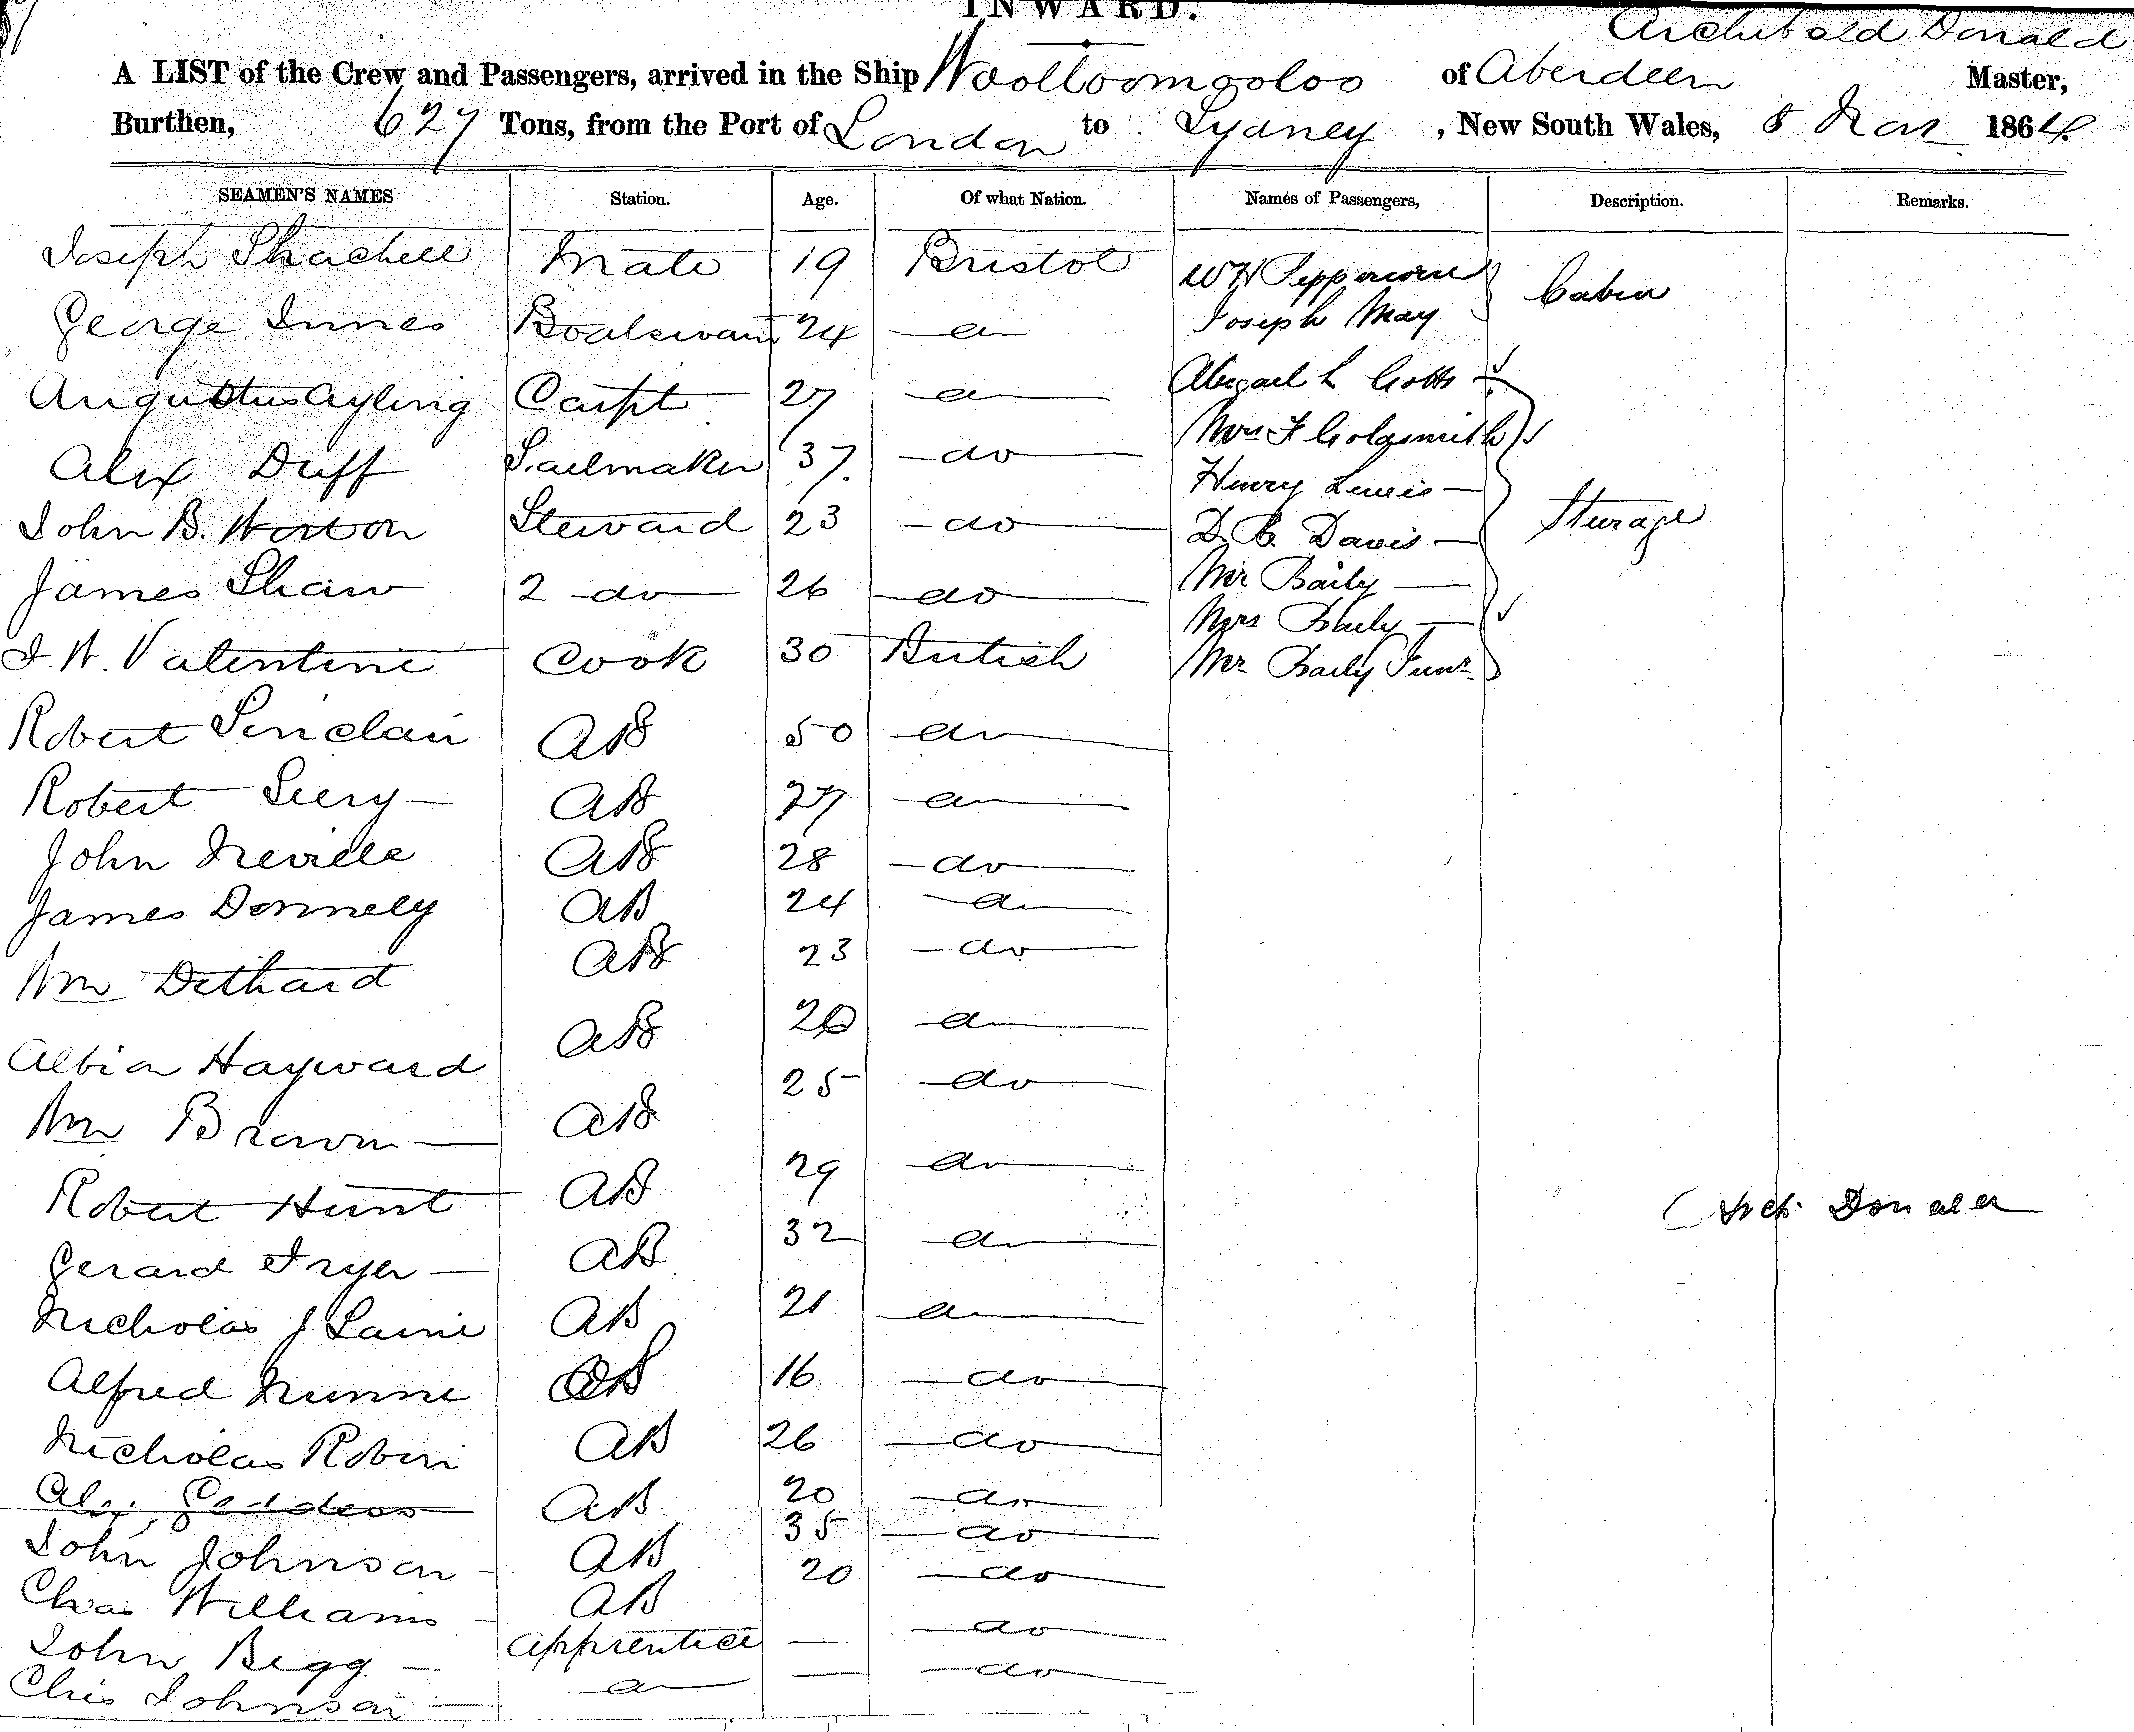 INWARD.
Archibald Donald
A LIST of the Crew and Passengers, arrived in the Ship Woolloomooloo of Aberdeen Master,
Burthen, 627 Tons, from the Port of London to Sydney, New South Wales, 8 Mar 1864
SEAMEN'S NAMES Station. Age. Of what Nation. Names of Passengers, Description. Remarks.
Joseph Mate 19 Bristol W H Joseph May Cabin
George Innes Boatswain 24 do
Augustus Ayling Carpt 27 do Abigail L Gotts
Alex Duff Sailmaker 37. do Mrs F Goldsmith
Henry Lewis
John B. Steward 23 do D. C. Davis Sturage
James Shaw 2 do 26 do Mr Baily
Mrs Baily
J. W. Valentine Cook 30 British Mr Baily Junr
Robert Sinclair AB 50 do
Robert AB 27 do
John Neville AB 28 do
James Donnely AB 24 do
Wm Dethard AB 23 do
Albion Hayward AB 20 do
Wm Brown AB 25 do
Robert Hunt AB 29 do
Arch. Donald
Gerard Fryer AB 32 do
Nicholas J AB 21 do
Alfred Nunne OS 16 do
Nicholas Robin AB 26 do
Alex Geddess AB 20 do
John Johnson AB 35 do
Chas Williams AB 20 do
John Begg Apprentice — do
Chis Johnson do — do